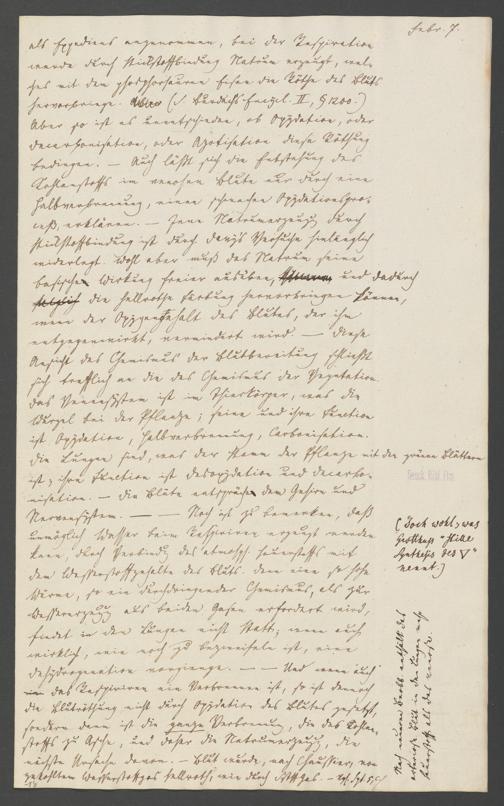 Febr. 7.
als Expediens angenommen, bei der Respiration
werde durch Stickstoffbindung Natrum erzeugt, wel-
ches mit dem phosphorsauren Eisen die Röthe des Bluts
hervorbringe. (s. Burdachs Encycl. II, § 1200.)
Aber so ist es unentschieden, ob Oxydation, oder
Decarbonisation, oder Azotisation diese Röthung
bedingen. — Auch läßt sich die Entstehung des
Kohlenstoffs im venosen Blute nur durch eine
Halbverbrennung, einen schwachen Oxydationspro-
ceß, erklären. — Jene Natrumerzeugg durch
Stickstoffbindung ist durch Davys Versuche hinlänglich
widerlegt. Wohl aber muß das Natrum seine
basische Wirkung freier ausüben, und dadurch
die hellrothe Färbung hervorbringen können,
wenn der Oxygengehalt des Blutes, der ihm
entgegenwirkt, vermindert wird. — Diese
Ansicht des Chemismus der Blutbereitung schließt
sich trefflich an die des Chemismus der Vegetation.
Das Venensystem ist im Thierkörper, was die
Wurzel bei der Pflanze; seine und ihre Function
ist Oxydation, Halbverbrennung, Carbonisation.
Die Lungen sind, was der Stamm der Pflanze mit den grünen Blättern
ist; ihre Function ist Desoxydation und Decarbo-
nisation. — Die Blüte entspräche dem Gehirn und
Nervensystem. — Noch ist zu bemerken, daß
unmöglich Wasser beim Respiriren erzeugt werden
kann, durch Verbindg des atmosph. Sauerstoffs mit
dem Wasserstoffgehalte des Bluts. Denn eine so hohe
Wärme, so ein durchdringender Chemismus, als zur
Wassererzeugg aus beiden Gasen erfordert wird,
findet in den Lungen nicht statt; wenn auch
wirklich, wie noch zu bezweifeln ist, eine
Dehydrogenation vorginge. — Und wenn auch
das Respiriren ein Verbrennen ist, so ist dennoch
die Blutröthung nicht durch Oxydation des Blutes gesetzt,
sondern dann ist die ganze Verbrennung, die des Kohlen-
stoffs zu Asche, und daher die Natrumerzeugg, die
nächste Ursache davon. — Blut würde, nach Chaussier, von
gekohltem Wasserstoffgas hellroth, wie durch
(Doch wohl, was
Grotthuss "stille
Synthesis des ▽"
nennt.)
Nach neuern Beobb. enthält das
arteriose Blut in den Lungen mehr
Sauerstoff als das venöse.